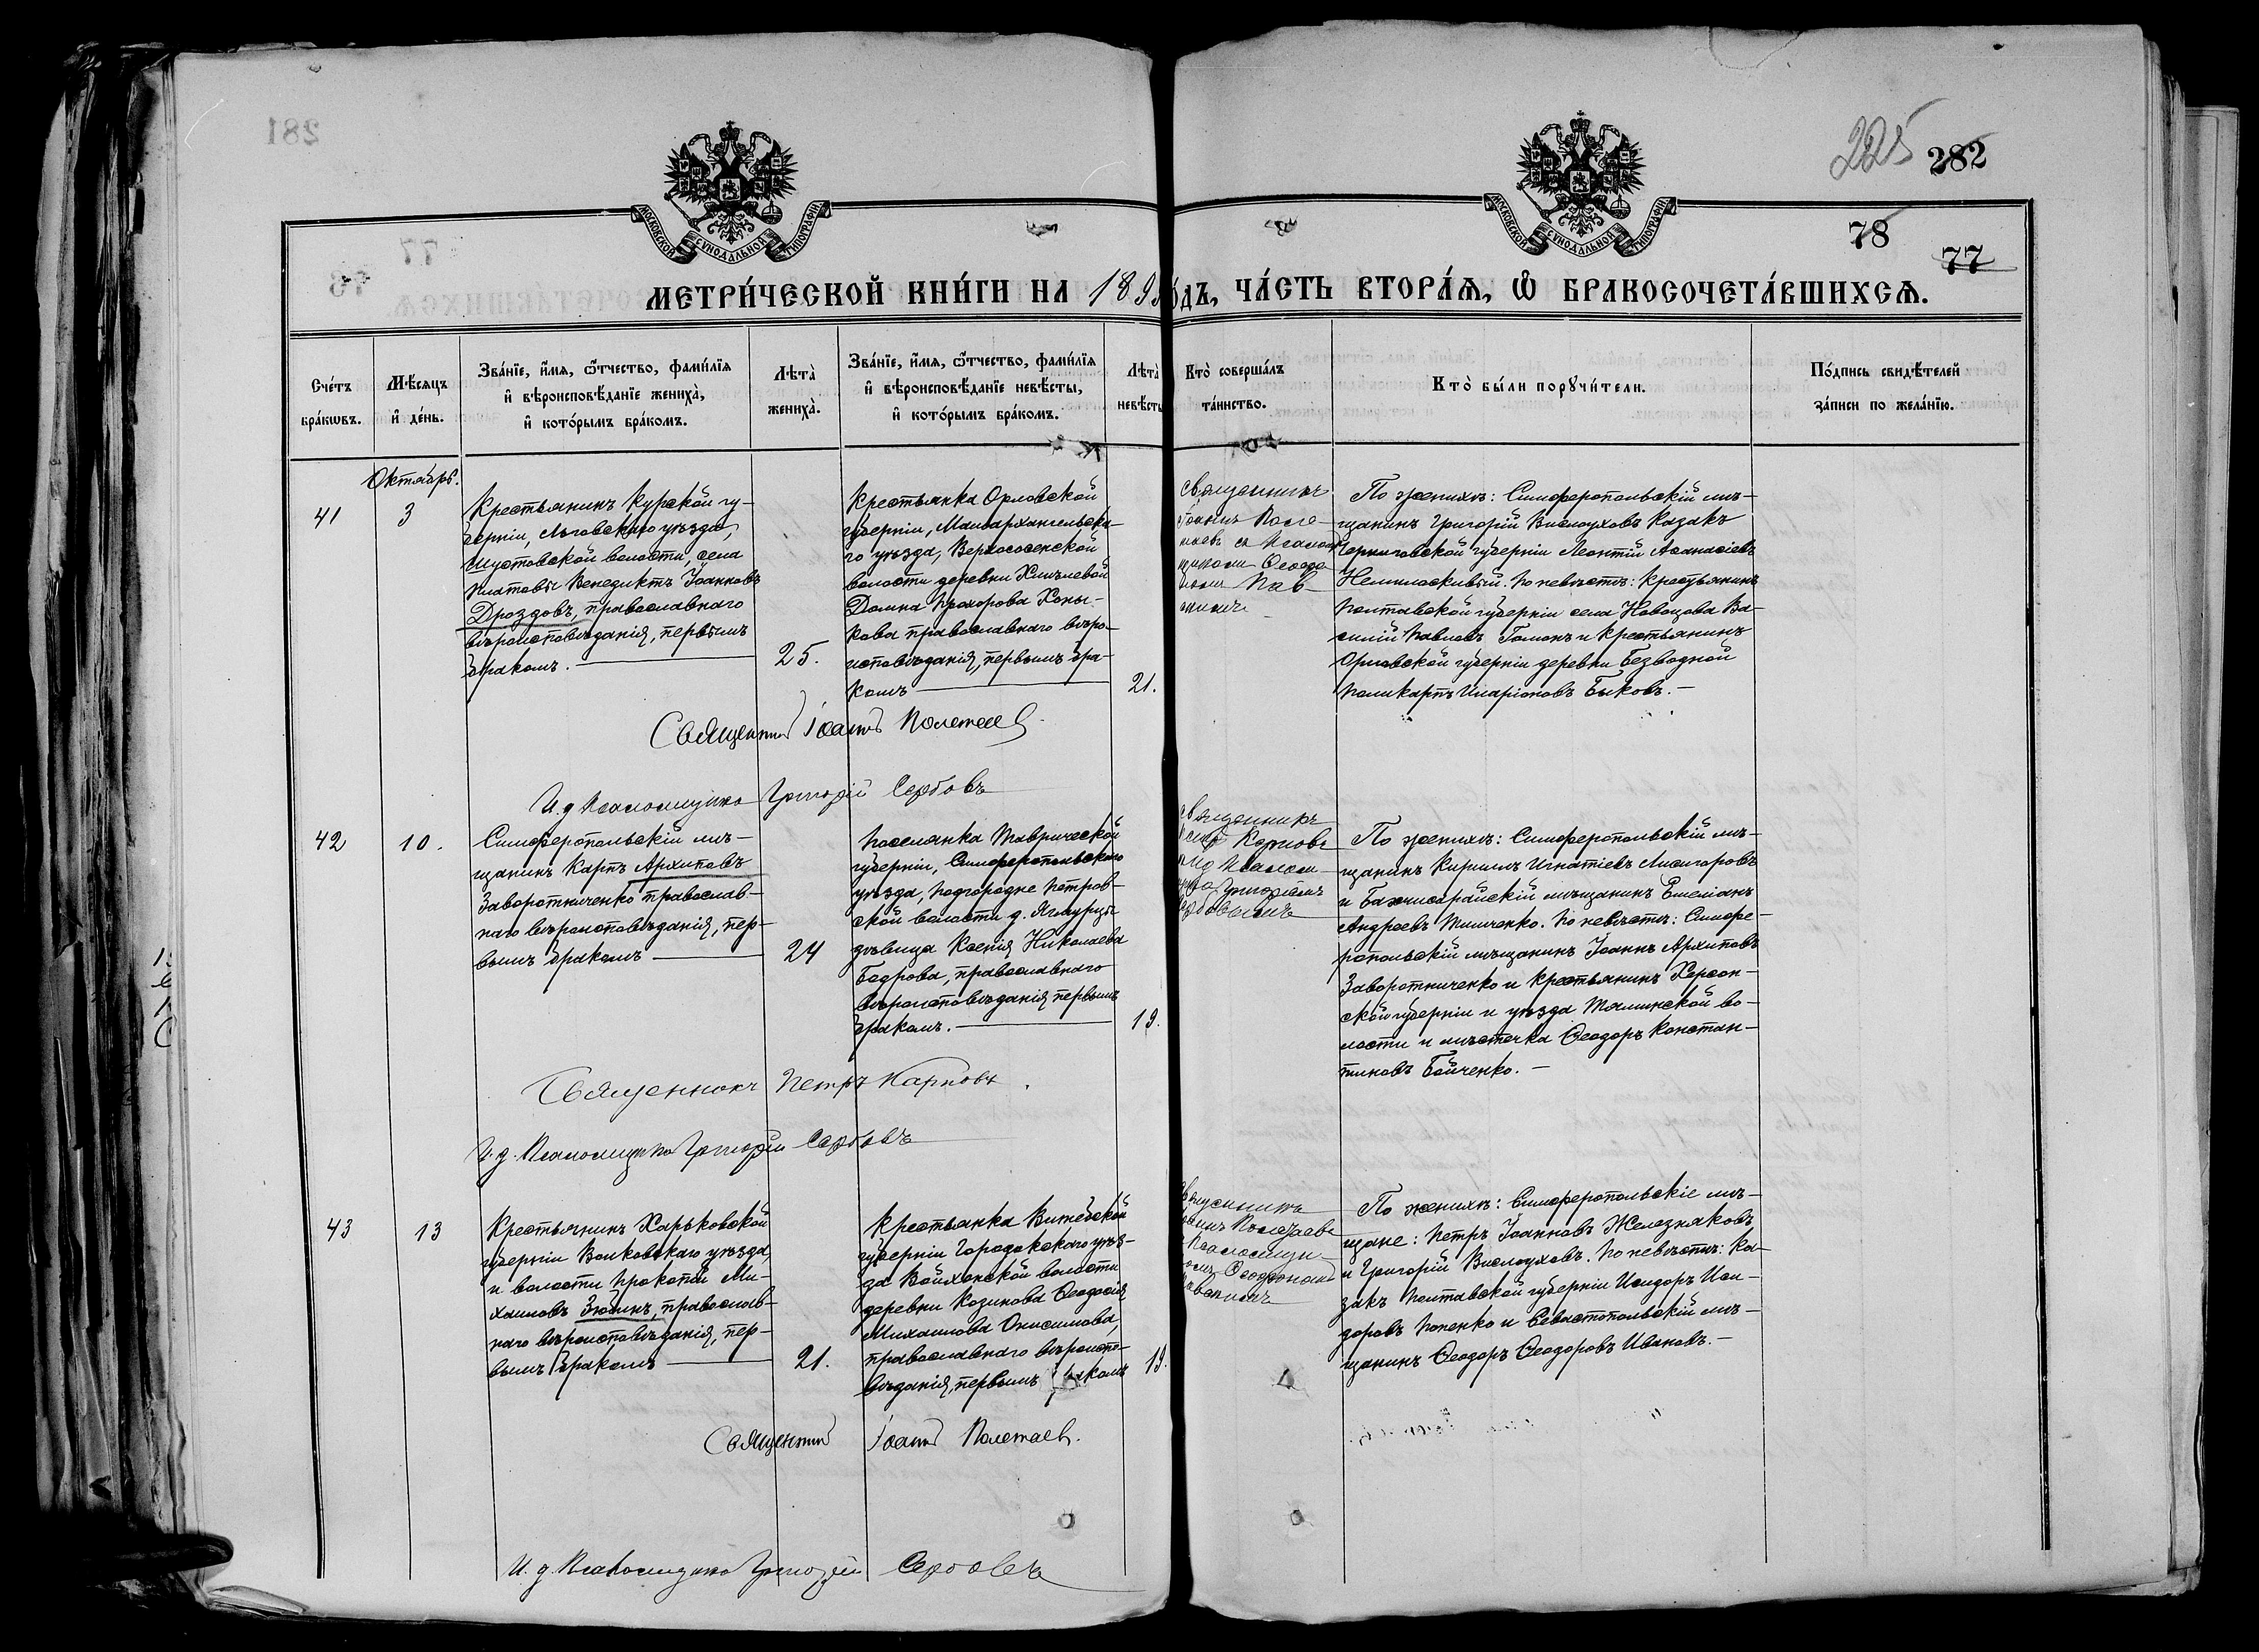 281
225 282
78
77
МОСКОВСКОЙ СѴНОДАЛЬНОЙ ТИПОГРАФІИ
МОСКОВСКОЙ СѴНОДАЛЬНОЙ ТИПОГРАФІИ
МЕТРИ́ЧЕСКОЙ КНИ́ГИ НА 189
ОДЪ, ЧА́СТЬ ВТОРА́Ѧ, Ѿ БРАКОСОЧЕТА́ВШИХСѦ.
Сче́тъ бра́кѡвъ.
Мѣ́сѧцъ и҆ де́нь.
Зва́нїе, и҆́мѧ, ѻ҆́тчество, фами́лїѧ
и҆ вѣроисповѣ́данїе жениха̀,
и҆ кото́рымъ бра́комъ.
Лѣта̀ жениха̀.
Зва́нїе, и҆́мѧ, ѻ҆́тчество, фами́лїѧ
и҆ вѣроисповѣ́данїе невѣ́сты,
и҆ кото́рымъ бра́комъ.
Лѣта̀ невѣ́сты
Кто̀ соверша́лъ та́инство.
Кто̀ бы́ли порꙋчи́тели.
По́дпись свидѣ́телей за́писи по жела́нїю.
Октябрь.
41
3
Крестьянинъ Курской гу-
берніи, Льговскаго уѣзда,
волости, села
Венедиктъ Іоанновъ
Дроздовъ, православнаго
вѣроисповѣданія, первымъ
бракомъ.
25.
Крестьянка Орловской
губерніи, Малоархангельска-
го уѣзда, Верхососенской
волости деревни Хмѣлевой
Домна Прохорова Хоны-
кова православнаго вѣро-
исповѣданія, первымъ бра-
комъ
21.
Священникъ
Іоаннъ Поле-
таевъ съ Псалом-
щикомъ
По женихѣ: Симферопольскій мѣ-
щанинъ Григорій Вислоуховъ Казакъ
Черниговской губерніи Леонтій Аѳанасіевъ
Немилоскивый. По невѣстѣ: Крестьянинъ
Полтавской губерніи села Ва-
силій Павловъ Гоманъ и крестьянинъ
Орловской губерніи деревни Безводной
Поликарпъ Иларіоновъ Быковъ.
Священникъ Іоаннъ Полетаевъ
И. д. Псаломщика Григорій Сербовъ
42
10.
Симферопольскій мѣ-
щанинъ Карпъ Архиповъ
Заворотниченко православ-
наго вѣроисповѣданія, пер-
вымъ бракомъ
24
Поселянка Таврической
губерніи, Симферопольскаго
уѣзда, Подгородне Петров-
ской волости д. Ягмурцы
дѣвица Ксенія Николаева
Бодрова, православнаго
вѣроисповѣданія первымъ
бракомъ.
19.
Священникъ
Петръ Карповъ
съ И.д. Псалом-
щика Григоріемъ
Сербовымъ
По женихѣ: Симферопольскій мѣ-
щанинъ Кириллъ Игнатіевъ
и Бахчисарайскій мѣщанинъ Емеліанъ
Андреевъ Тимченко. По невѣстѣ: Симфе-
ропольскій мѣщанинъ Іоаннъ Архиповъ
Заворотниченко и крестьянинъ Херсон-
ской губерніи и уѣзда во-
лости и мѣстечка Ѳеодоръ Констан-
тиновъ Бойченко.
Священникъ Петръ Карповъ
И. д. Псаломщика Григорій Сербовъ
43
13
Крестьянинъ Харьковской
губерніи Волковскаго уѣзда,
и волости Прокопій Ми-
хаиловъ Зюзинъ, православ-
наго вѣроисповѣданія, пер-
вымъ бракомъ
21.
Крестьянка Витебской
губерніи Городокскаго уѣз-
да Войханской волости
деревни Козинова Ѳеодосія
Михаилова Онисимова,
православнаго вѣроиспо-
вѣданія, первымъ бракомъ
19.
Священникъ
Іоаннъ Полетаевъ
Псаломщи-
комъ
По женихѣ: Симферопольскіе мѣ-
щане: Петръ Іоанновъ Железняковъ
и Григорій Вислоуховъ. По невѣстѣ: Ка-
закъ Полтавской губерніи Исидоръ Иси-
доровъ Попенко и Севастопольскій мѣ-
щанинъ Ѳеодоръ Ѳеодоровъ Ивановъ.
Священникъ Іоаннъ Полетаевъ.
И. д. Псаломщика Григорій Сербовъ